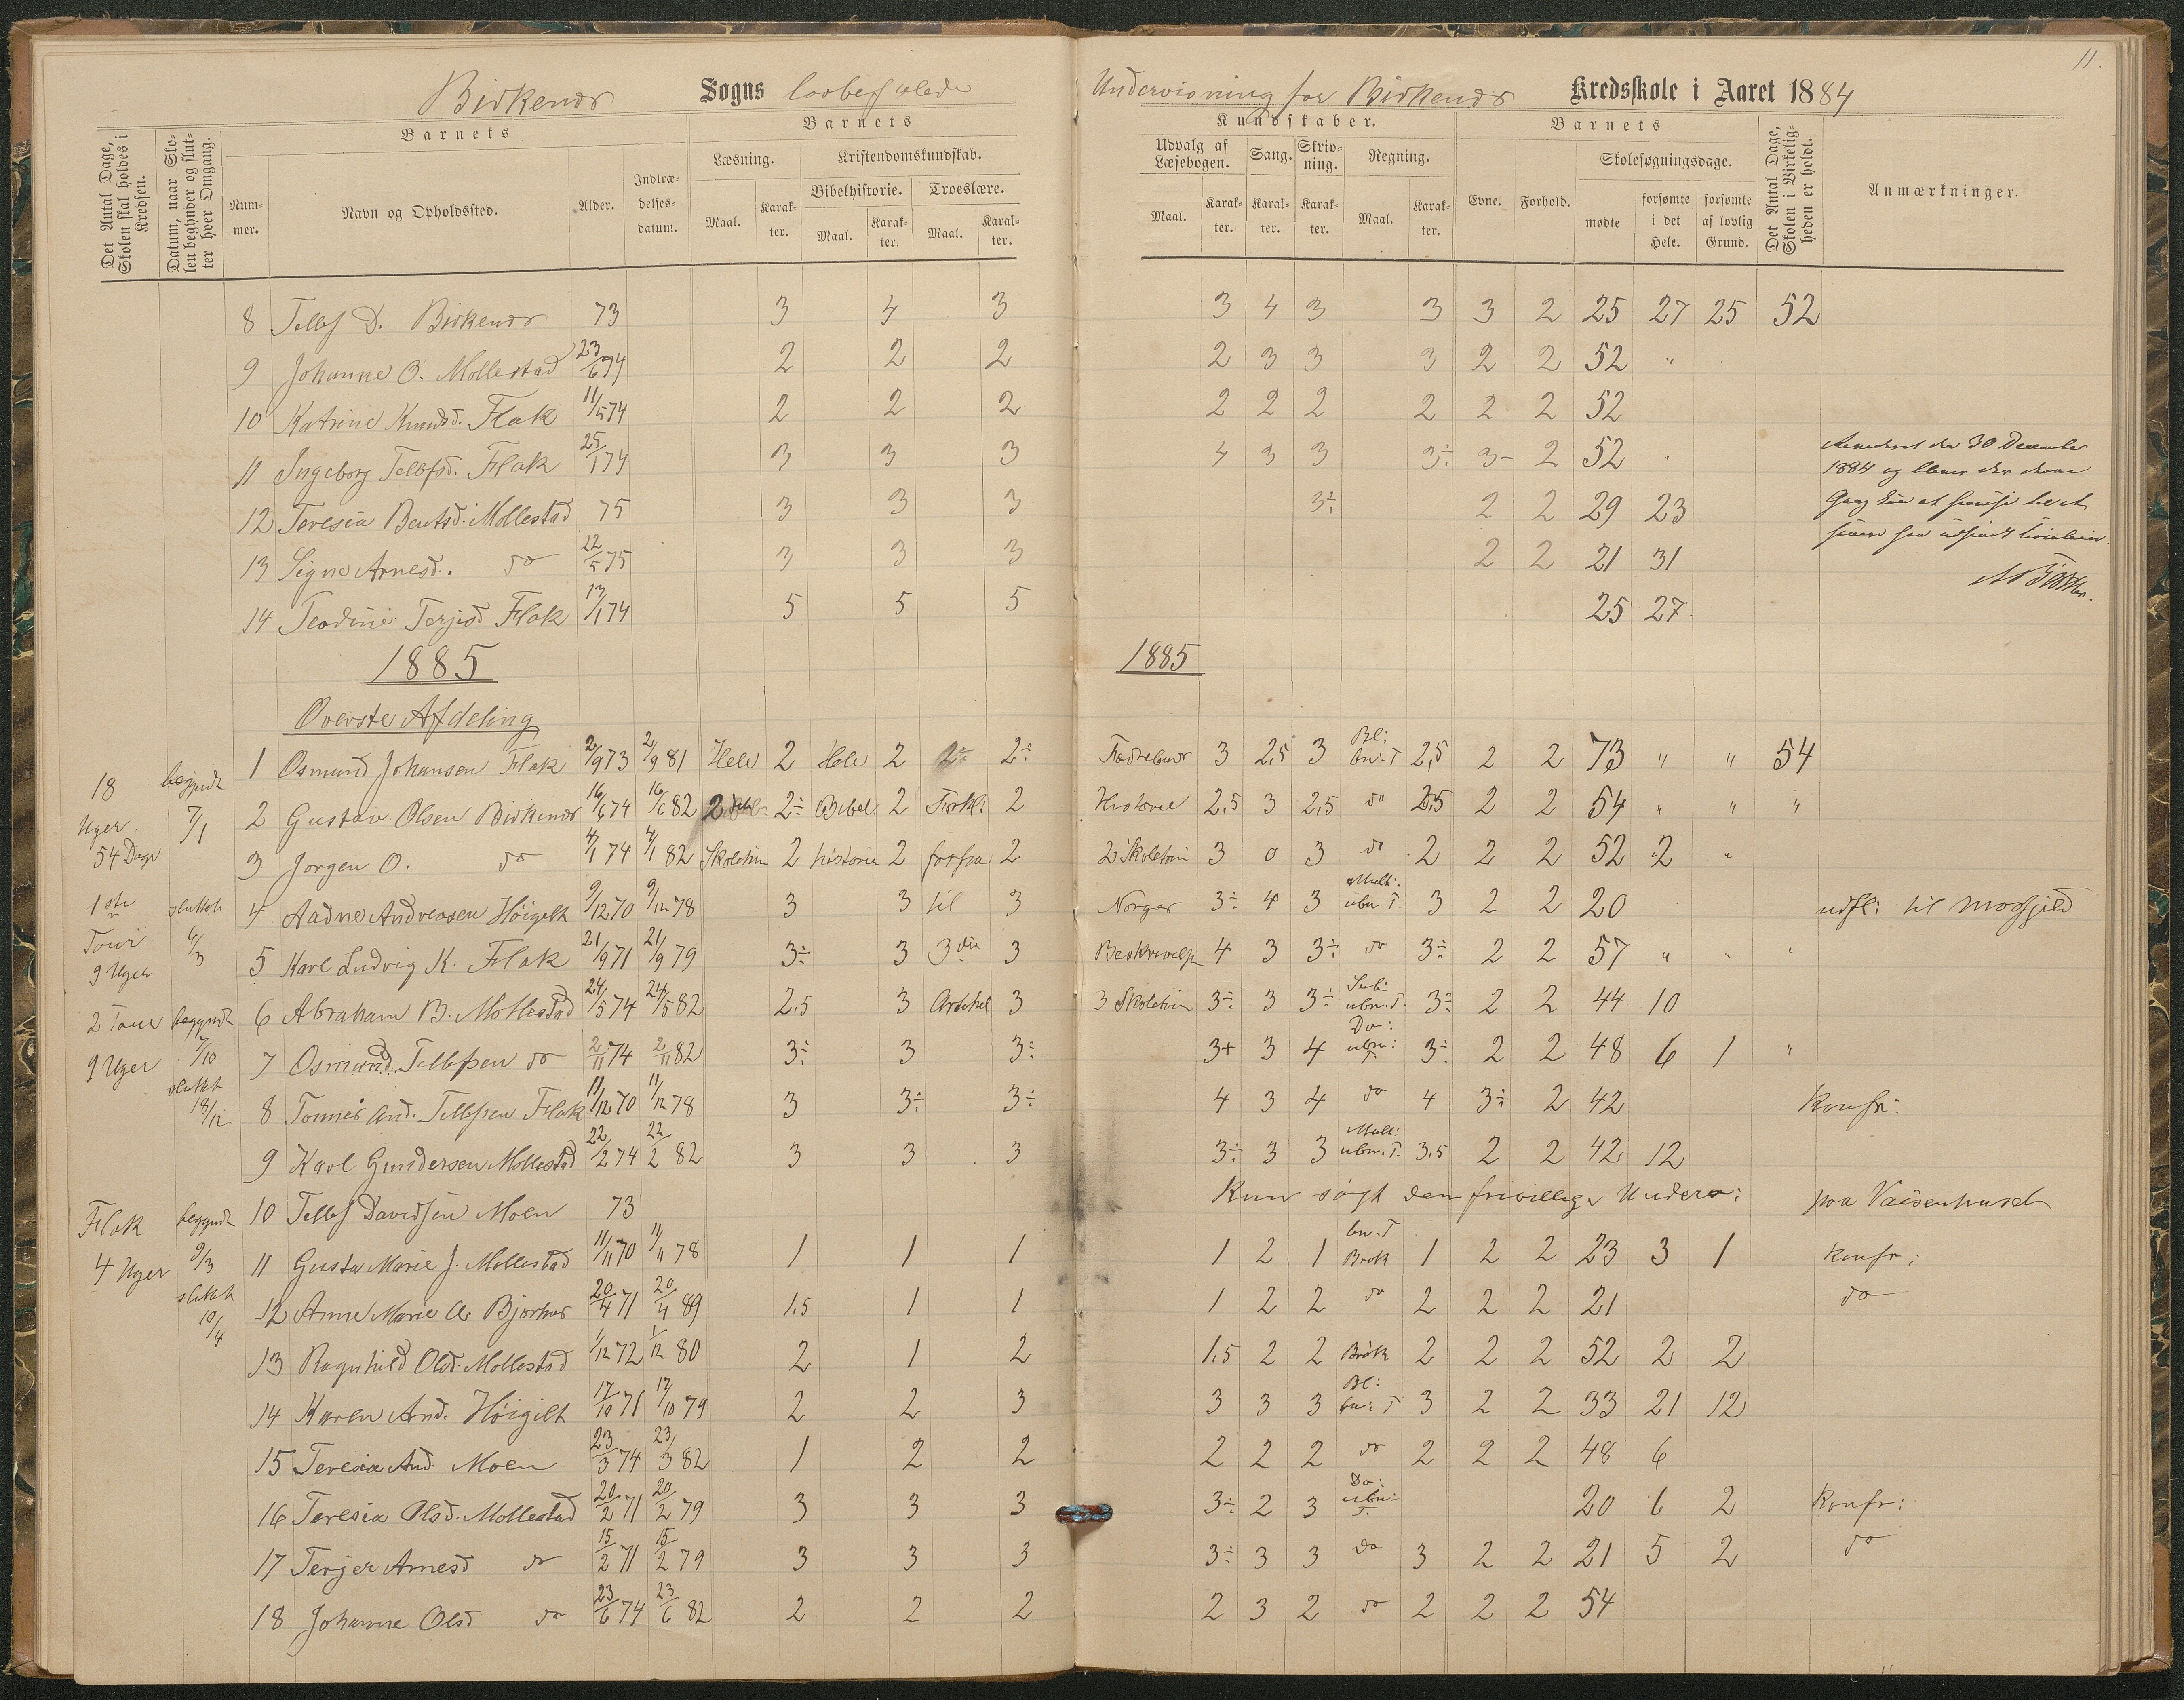 11.
Birkenes Sogns lovbefalede Undervisning for Birkenes Kredsskole i Aaret 1884
Det Antal Dage, Skolen skal holdes i Kredsen.
Datum, naar Skolen begynder og slutter hver Omgang.
Barnets
Nummer.
Navn og Opholdssted.
Alder.
Indtrædelsesdatum.
Barnets
Læsning.
Maal.
Karakter.
Kristendomskundskab.
Bibelhistorie.
Maal.
Karakter.
Troeslære.
Maal.
Karakter.
Kundskaber.
Udvalg af Læsebogen.
Maal.
Karakter.
Sang.
Karakter.
Skrivning.
Karakter.
Regning.
Maal.
Karakter.
Barnets
Evne.
Forhold.
Skolesøgningsdage.
mødte
forsømte i det Hele.
forsømte af lovlig Grund.
Det Antal Dage, Skolen i Virkeligheden er holdt.
Anmærkninger.
8 Tellef D. Birkenes 73 3 4 3 3 4 3 3 3 2 25 27 25 52
9 Johanne O. Mollestad 23/6 74 2 2 2 2 3 3 3 2 2 52 "
10 Katrine Knudsd. Flak 11/5 74 2 2 2 2 2 2 2 2 2 52
11 Ingeborg Tellefsd. Flak 25/1 74 3 3 3 4 3 3 3÷ 3- 2 52
den 30 December
1884 og
12 Teresia Bentsd. Mollestad 75 3 3 3 3÷ 2 2 29 23
Gang
13 Signe Arnesd. do 22/5 75 3 3 3 2 2 21 31
14 Teodine Terjesd Flak 13/1 74 5 5 5 25 27
1885 1885
Overste Afdeling
1 Osmund Johansen Flak 2/9 73 2/9 81 Hele 2 Hele 2 2÷ Fædreland 3 2,5 3 Bl: bn. T 2,5 2 2 73 " " 54
18 Uger 54 Dage
begyndt 7/1
2 Gustav Olsen Birkenes 16/6 74 16/6 82 2 2÷ Bibel 2 Forkl: 2 Historie 2,5 3 2,5 do 2,5 2 2 54 " " "
3 Jorgen O. do 4/1 74 4/1 82 Skoletrin 2 historie 2 forfra 2 2 Skoletrin 3 0 3 do 2 2 2 52 2 "
1ste Tour 9 Uger
sluttet 6/3
4 Aadne Andreasen Høigilt 9/12 70 9/12 78 3 3 til 3 Norges 3÷ 4 3 Mult: ubn. T. 3 2 2 20 udfl: til Mosfjeld
5 Karl Ludvig K. Flak 21/9 71 21/9 79 3÷ 3 3die 3 Beskrivelse 4 3 3÷ do 3÷ 2 2 57 " " "
6 Abraham B. Mollestad 24/5 74 24/5 82 2,5 3 Artikel 3 3 Skoletrin 3÷ 3 3÷ Sub: ubn. T. 3÷ 2 2 44 10
2 Tour 9 Uger
begyndt 7/10 sluttet 18/12
7 Osmund Tellefsen do 2/11 74 2/11 82 3÷ 3 3÷ 3+ 3 4 Do: ubn: T 3÷ 2 2 48 6 1 "
8 Tonnes And. Tellefsen Flak 11/12 70 11/12 78 3 3÷ 3÷ 4 3 4 do 4 3÷ 2 42 Konfr:
9 Karl Gundersen Mollestad 22/2 74 22/2 82 3 3 3 3÷ 3 3 Mult: ubn. T. 3,5 2 2 42 12
10 Tellef Davidsen Moen 73 Kun søgt den frivillige Underv: paa Vaisenhuset
Flak 4 Uger
begyndt 9/3 sluttet 10/4
11 Gusta Marie J. Mollestad 11/11 70 11/11 78 1 1 1 1 2 1 bn. T Brøk 1 2 2 23 3 1 Konfr:
12 Anne Marie A. Bjorhus 20/4 71 20/4 89 1,5 1 1 1 2 2 do 2 2 2 21 do
13 Ragnhild Olsd. Mollestad 1/12 72 1/12 80 2 1 2 1,5 2 2 Brøk 2 2 2 52 2 2
14 Karen And. Høigilt 17/10 71 17/10 79 2 2 3 3 3 3 Bl: bn: T 3 2 2 33 21 12
15 Teresia And. Moen 23/3 74 23/3 82 1 2 2 2 2 2 do 2 2 2 48 6
16 Teresia Olsd. Mollestad 20/2 71 20/2 79 3 3 3 3÷ 2 3 Do: ubn: T. 20 6 2 Konfr:
17 Terjer Arnesd do 15/2 71 15/2 79 3 3 3 3÷ 3 3 do 3 2 2 21 5 2 do
18 Johanne Olsd do 23/6 74 23/6 82 2 2 2 2 3 2 do 2 2 2 54